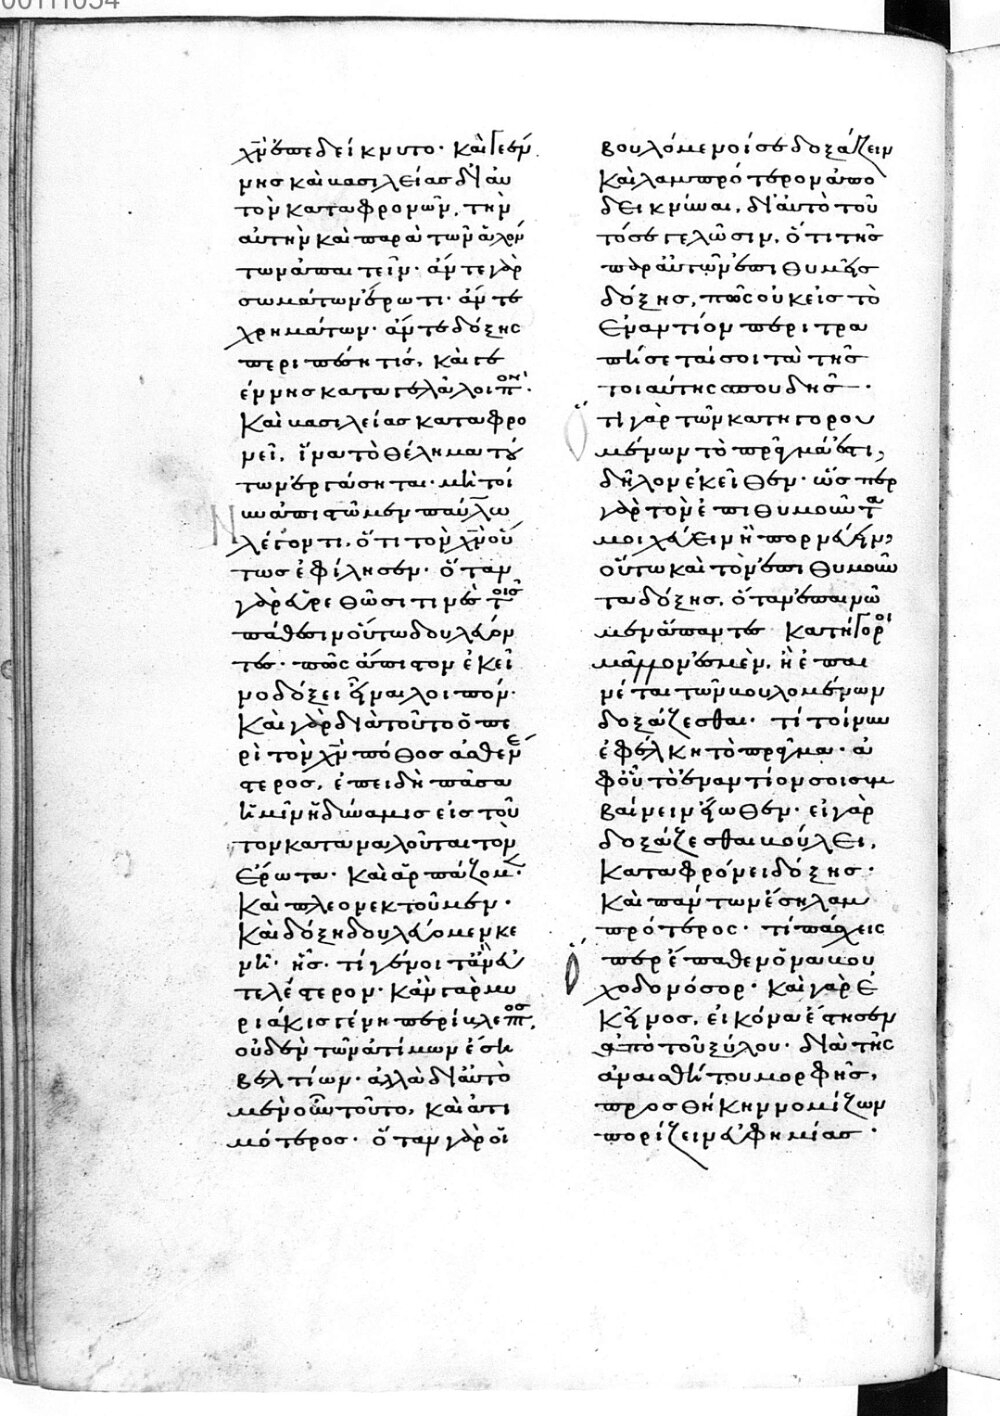 χν ἐπεδείκνυτο· καὶ γεέν
νης καὶ βασιλείας δι' αὐ
τὸν καταφρονῶν, τὴν
αὐτὴν καὶ παρὰ τῶν ἄλλων
τῶν ἀπαιτεῖν· ἄν τε γὰρ
σωμάτων ἔρωτι· ἄν τε
χρημάτων· ἄν τε δόξης
περιπέσῃ τίς, καὶ γε
έννης καταγελᾷ λοιπόν·
καὶ βασιλείας καταφρο
νεῖ, ἵνα τὸ θέλημα τού
των ἐργάσηται· μὴ τοί
νυν ἀπιστῶμεν παύλω
λέγοντι, ὅτι τὸν χν οὕ
τως ἐφίλησεν· ὅταν
γὰρ εὑρεθῶσί τινες τοῖς
πάθεσιν οὕτω δουλεύον
τες· πῶς ἄπιστον ἐκεῖ
νο δόξει εἶναι λοιπόν·
καὶ γὰρ διὰ τοῦτο ὁ πε
ρὶ τὸν χν πόθος ἀσθενέ
στερος, ἐπειδὴ πᾶσα
ἡμῖν ἡ δύναμις εἰς τοῦ
τον καταναλοῦται τὸν
ἔρωτα· καὶ ἁρπάζομεν·
καὶ πλεονεκτοῦμεν·
καὶ δόξη δουλεύομεν κε
νῆ· ἧς· τί γένοιτ' ἂν εὐ
τελέστερον· κἂν γὰρ μυ
ριάκις γένη περίβλεπτος,
οὐδὲν τῶν ἀτίμων ἔση
βελτίων· ἀλλὰ δι' αὐτὸ
μὲν οὖν τοῦτο, καὶ ἀτι
μότερος· ὅταν γὰρ οἱ
βουλόμενοί σε δοξάζειν
καὶ λαμπρότερον ἀπο
δεικνύναι, δι' αὐτὸ τοῦ
τό σε γελῶσιν, ὅτι τῆς
παρ' αὐτῶν ἐπιθυμεῖς
δόξης, πῶς οὐκ εἰς τὸ
ἐναντίον περιτρα
πήσεταί σοι τὰ τῆς
τοιαύτης σπουδῆς·
τῶν γὰρ τῶν κατηγορου
μένων τὸ πρᾶγμά ἐστι,
δῆλον ἐκεῖθεν· ὥσπερ
γὰρ τὸν ἐπιθυμοῦντα
μοιχεύειν ἢ πορνεύειν,
οὕτω καὶ τὸν ἐπιθυμοῦν
τα δόξης, ὅταν ἐπαινῶ
μεν ἅπαντες κατήγοροι
μᾶλλον ἐσμὲν, ἢ ἐπαι
νέται τῶν βουλομένων
δοξάζεσθαι· τί τοίνυν
ἐφέλκη τὸ πρᾶγμα· ἀ
φ' οὗ τὸ ἐναντίον σοι συμ
βαίνειν εἴωθεν· εἰ γὰρ
δοξάζεσθαι βούλει,
καταφρόνει δόξης·
καὶ πάντων ἔση λαμ
πρότερος· τί πάσχεις
ὅπερ ἔπαθεν ὁ ναβου
χοδονόσορ· καὶ γὰρ ἐ
κεῖνος, εἰκόνα ἔστησεν
ἀπὸ τοῦ ξύλου· διὰ τῆς
ἀναισθήτου μορφῆς,
προσθήκην νομίζων
πορίζειν εὐφημίας·